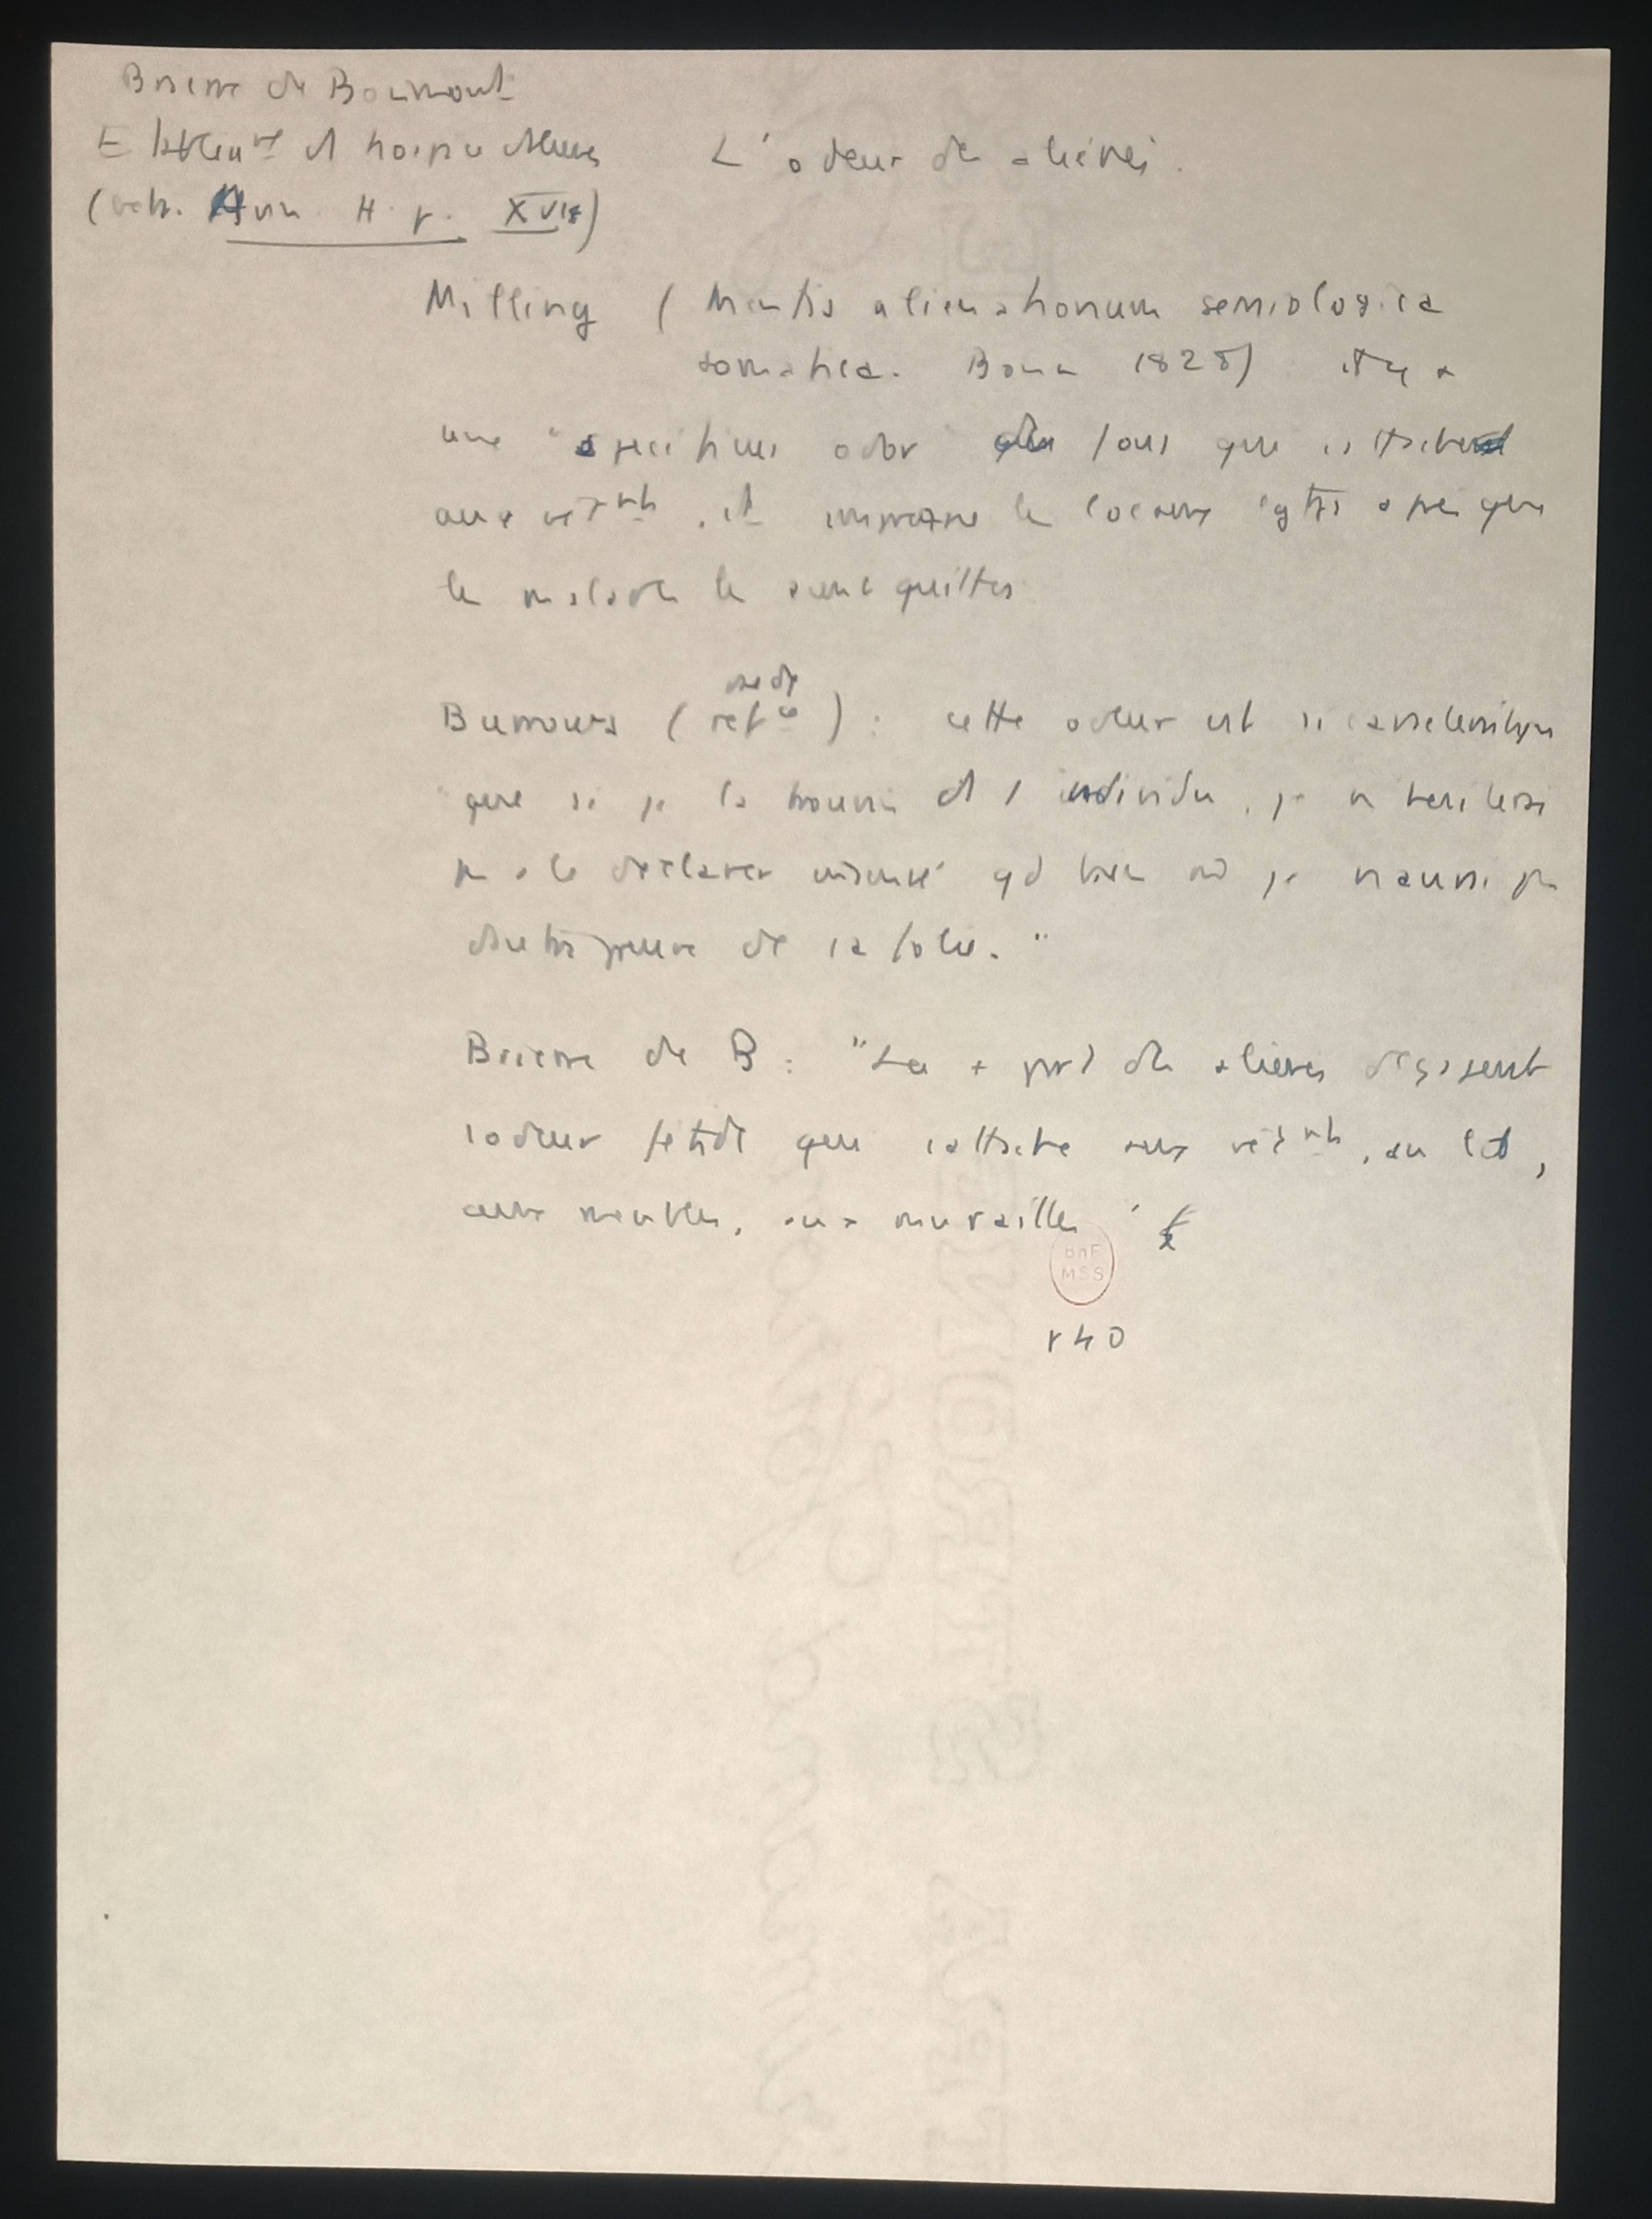 Brierre de Boismont
L'odeur des aliénés.
(extr. Ann. H. p. XVI)
Milling (Mentis alienationum semiologica
somatica. Bonn 1828) il y a
une "specificus odor" des fous qui s'attache
aux vêtmts, et imprègne les locaux lgtps après que
les malades les aient quittés
Burrows (réfce) : cette odeur est si caractéristique
"que si je la trouvais ds 1 individu, je n'hésiterais
pas à le déclarer insensé qd bien mm je n'aurais pas
d'autre preuve de la folie."
Brierre de B : "La + part des aliénés dégagent
1 odeur fétide qui s'attache aux vêtmts, au lit,
aux meubles, aux murailles"
bnF
MSS
r40